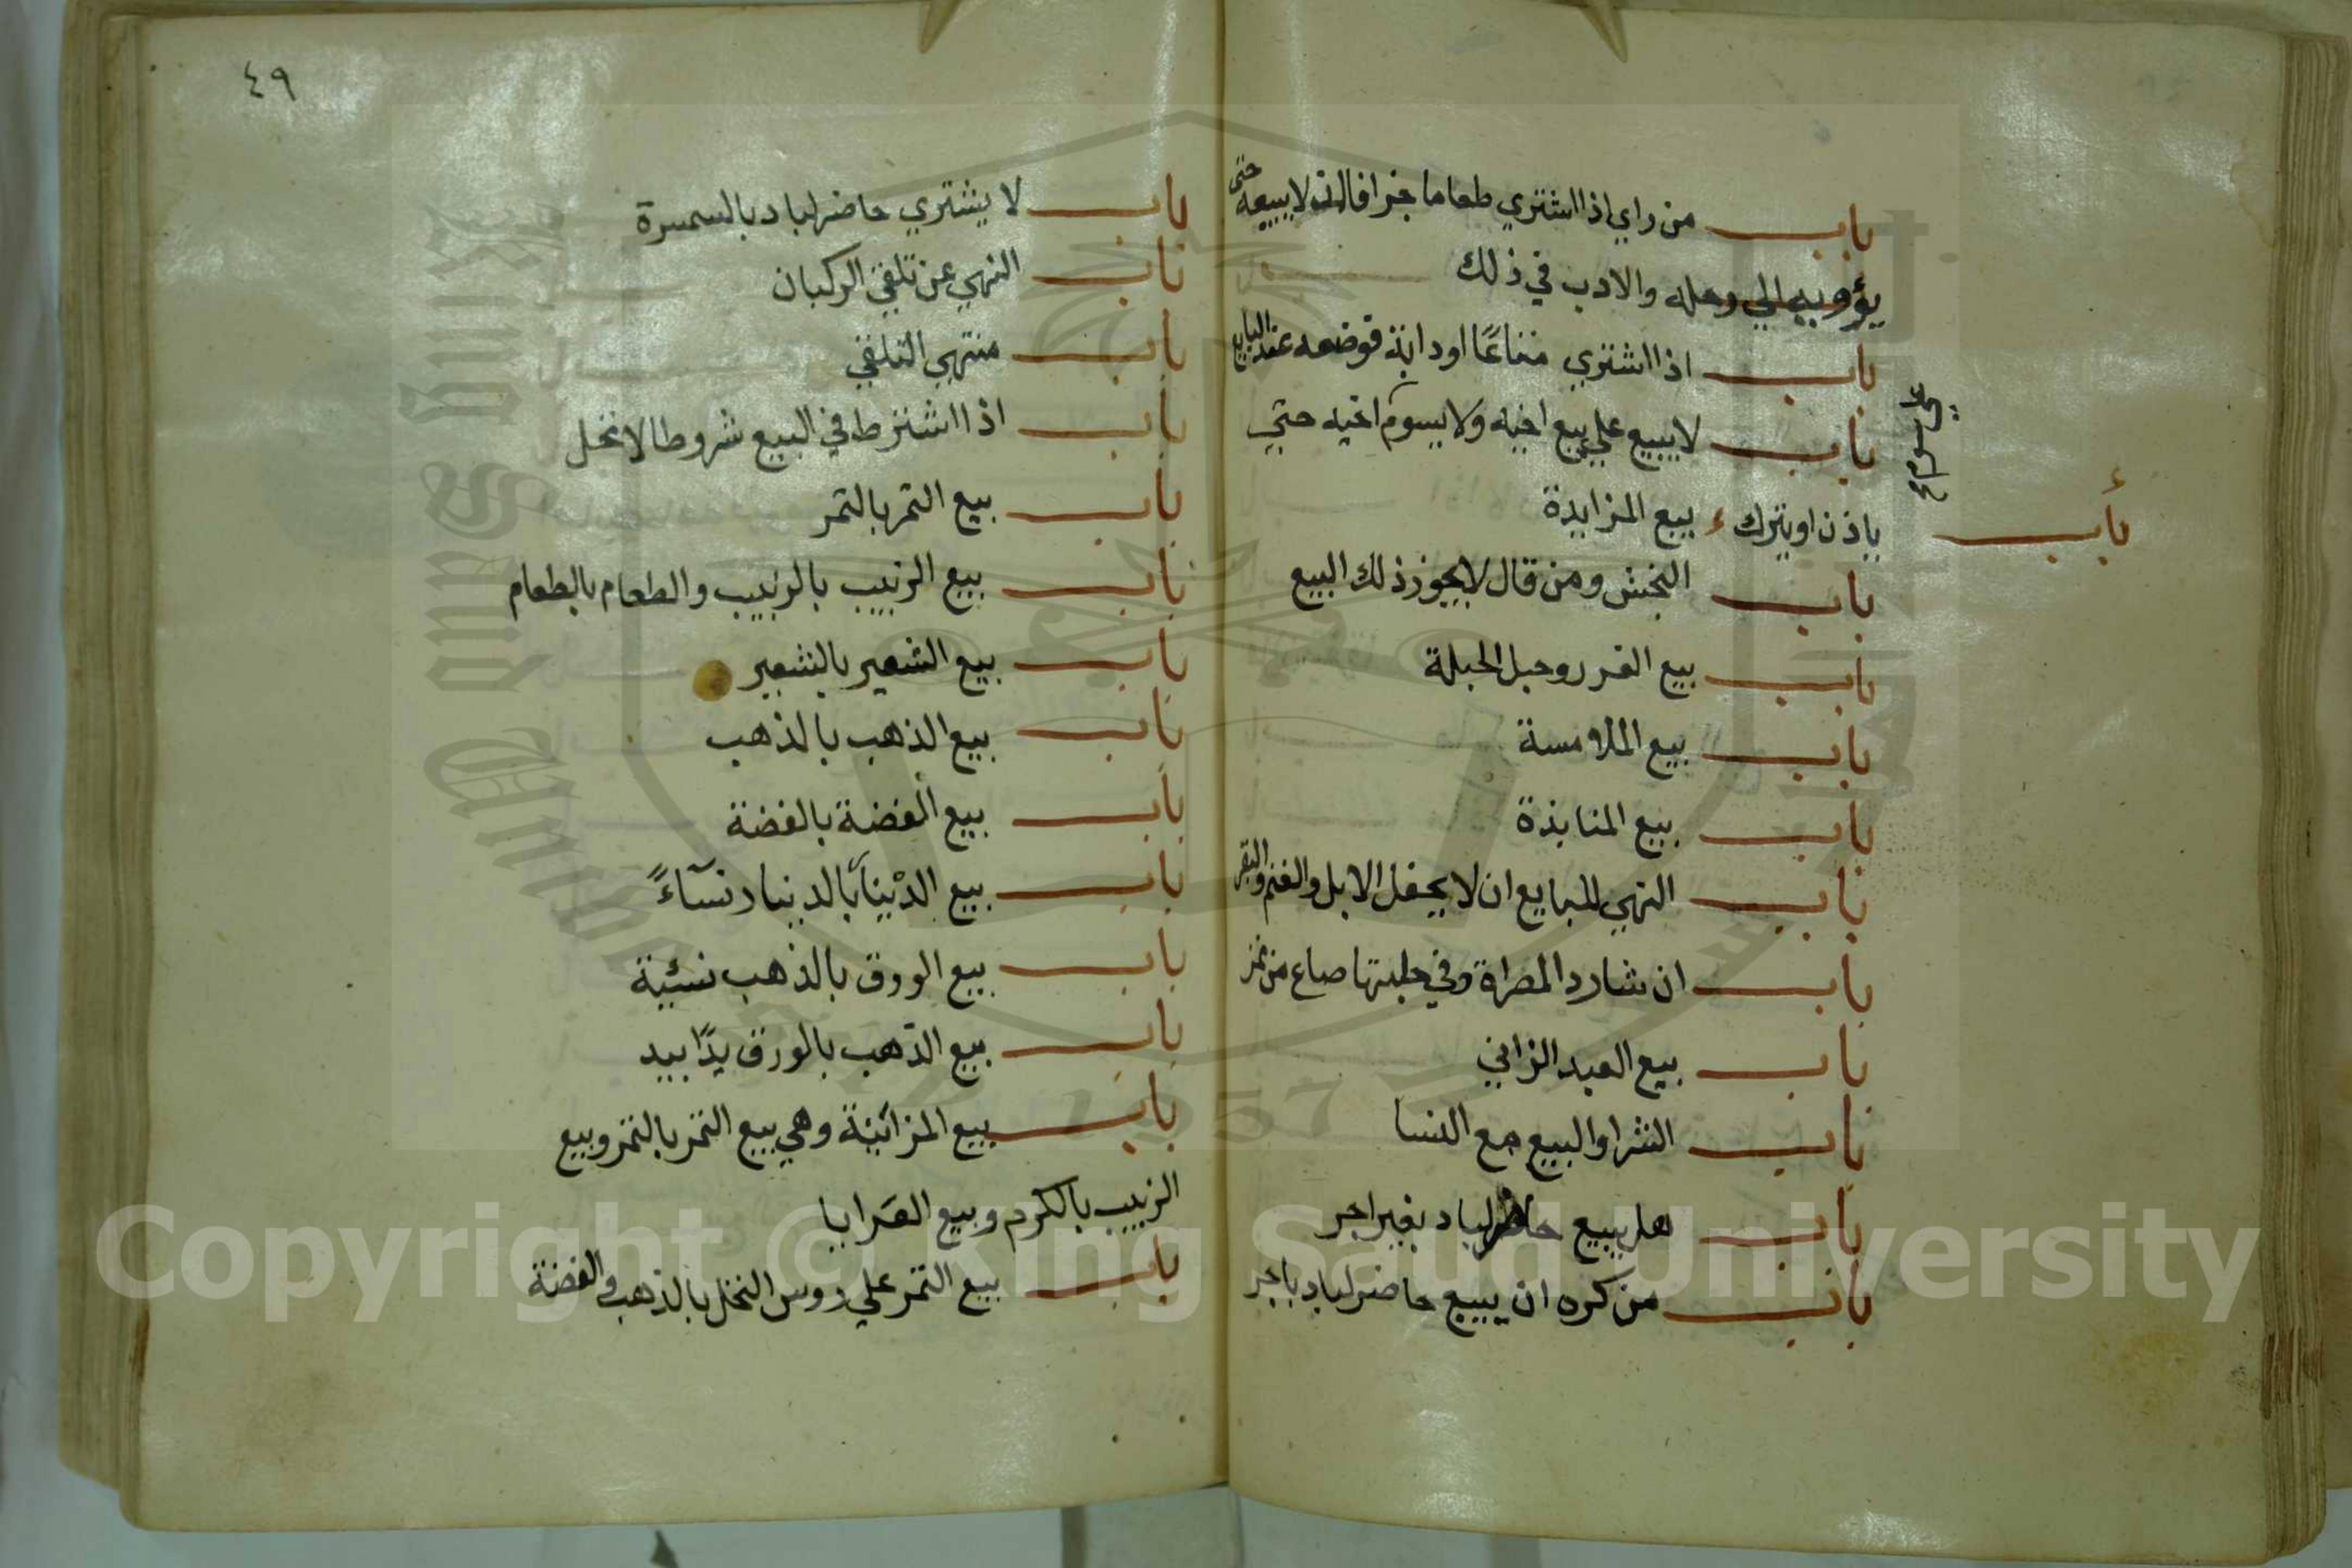 باب من راي اذا اشتري طعاما جزافا ان لا يبيعه حتى
يؤويه الي رحله والادب في ذلك
باب اذا اشتري متاعًا او دابة فوضعه عند البايع
باب لا يبيع علي بيع اخيه ولا يسوم اخيه حتي
علي سوم
ياذن او يترك ء بيع المزايدة
باب
باب النجش ومن قال لا يجوز ذلك البيع
باب بيع الغرر وحبل الحبلة
باب بيع الملامسة
باب بيع المنابذة
باب النهي للبايع ان لا يحفل الابل والغنم والبقر
باب ان شا رد المصراة وفي حلبتها صاع من تمر
باب بيع العبد الزاني
باب الشرا والبيع مع النسا
باب هل يبيع حاضر لباد بغير اجر
باب من كره ان يبيع حاضر لباد باجر
٤٩
باب لا يشتري حاضر لباد بالسمسرة
باب النهي عن تلقي الركبان
باب منتهي التلقي
باب اذا اشترط في البيع شروطا لا تحل
باب بيع التمر بالتمر
باب بيع الزبيب بالزبيب والطعام بالطعام
باب بيع الشعير بالشعير
باب بيع الذهب بالذهب
باب بيع الفضة بالفضة
باب بيع الدينار بالدينار نسآءً
باب بيع الورق بالذهب نسئية
باب بيع الذهب بالورق يدًا بيد
باب بيع المزابنة وهي بيع التمر بالتمر وبيع
الزبيب بالكرم وبيع العرايا
باب بيع التمر علي روس النخل بالذهب والفضة
Copyright © King Saud University
1957